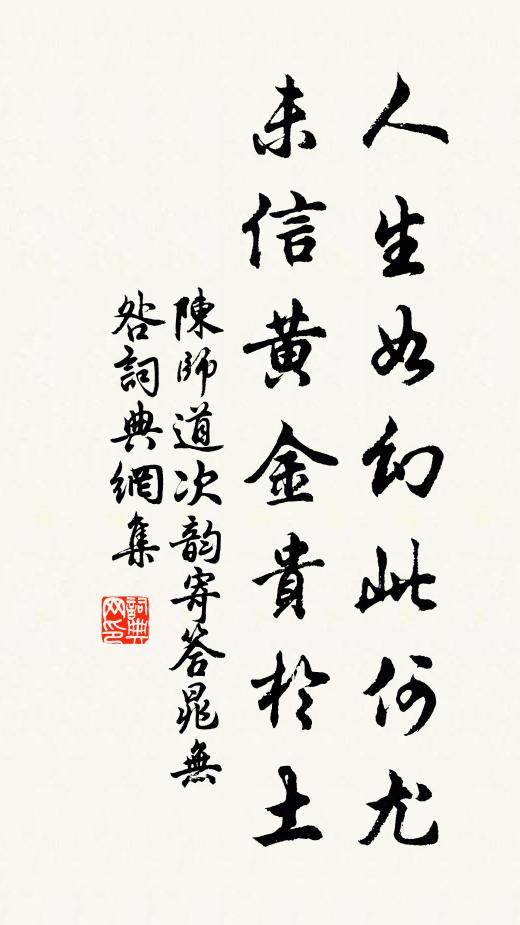 人生如幻此何尤
未信黃金貴於土
陳師道次韵寄答晁無
咎詞典網集
詞典
网印